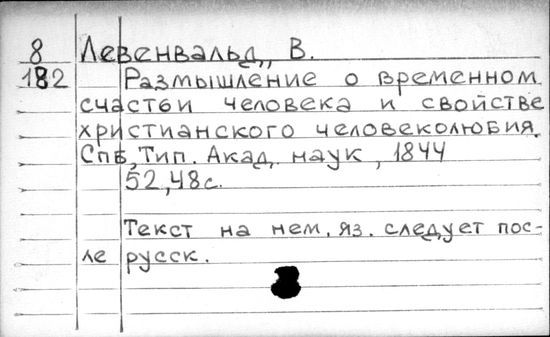 8 Левенвальд, В.
182 Размышление о временном
счастьи человека и свойстве
христианского человеколюбия.
Спб, Тип. Акад. наук, 1844
52,48с.
Текст на нем. яз. следует пос-
ле русск.